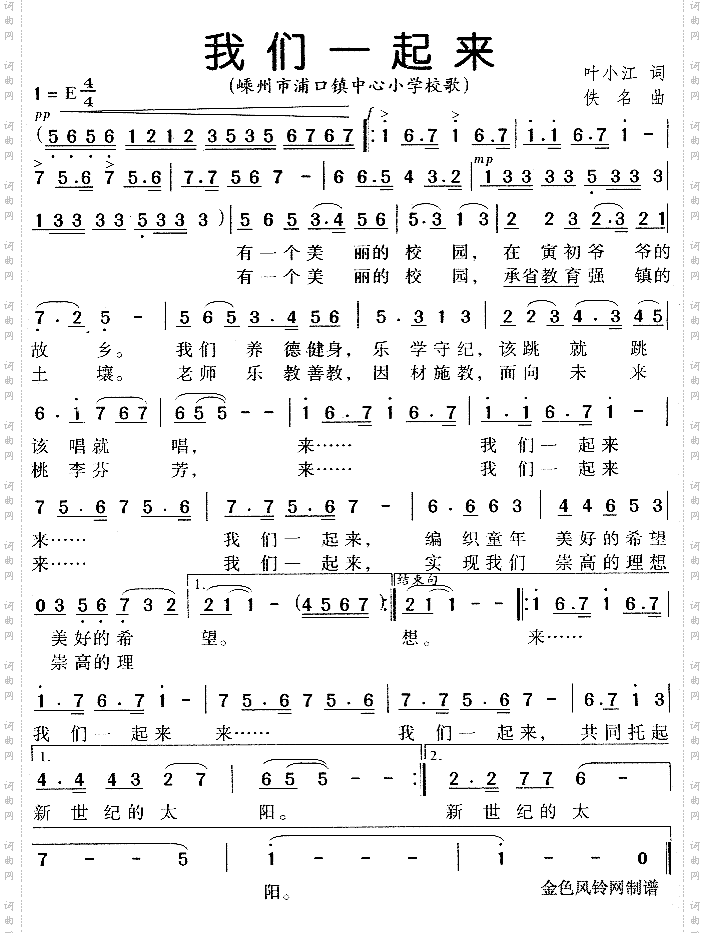 我们一起来
(嵊州市浦口镇中心小学校歌)
叶小江 词
佚名 曲
1=E 4/4
pp f
(5 6 5 6 1 2 1 2 3 5 3 5 6 7 6 7 |: 1 6.7 1 6.7 | 1.1 6.7 1 - |
mp
7 5.6 7 5.6 | 7.7 5 6 7 - | 6 6.5 4 3.2 | 1 3 3 3 5 3 3 3 |
1 3 3 3 5 3 3 3) | 5 6 5 3.4 5 6 | 5.3 1 3 | 2 2 3 2.3 2 1 |
有一个美 丽的校 园, 在 寅初爷 爷的
有一个美 丽的校 园, 承省教育强 镇的
7.2 5 - | 5 6 5 3.4 5 6 | 5.3 1 3 | 2 2 3 4.3 4 5 |
故 乡。 我们 养 德健身, 乐 学守纪, 该跳 就 跳
土 壤。 老师 乐 教善教, 因 材施教, 面向 未 来
6.1 7 6 7 | 6 5 5 - - | 1 6.7 1 6.7 | 1.1 6.7 1 - |
该 唱就 唱, 来…… 我 们一 起来
桃 李芬 芳, 来…… 我 们一 起来
7 5.6 7 5.6 | 7.7 5.6 7 - | 6.6 6 3 | 4 4 6 5 3 |
来…… 我 们一 起来, 编 织童年 美好的希望
来…… 我 们一 起来, 实 现我们 崇高的理想
1. 结束句
0 3 5 6 7 3 2 | 2 1 1 - (4 5 6 7) :| 2 1 1 - - |: 1 6.7 1 6.7 |
美好的希 望。 想。 来……
崇高的理
1.7 6.7 1 | 7 5.6 7 5.6 | 7.7 5.6 7 - | 6.7 1 3 |
我 们一起来 来…… 我 们一 起来, 共同托起
1. 2.
4.4 4 3 2 7 | 6 5 5 - - :| 2.2 7 7 6 - |
新 世纪的太 阳。 新 世纪的太
7 - - 5 | 1 - - - | 1 - - 0 ‖
阳。
金色风铃网制谱
词曲网